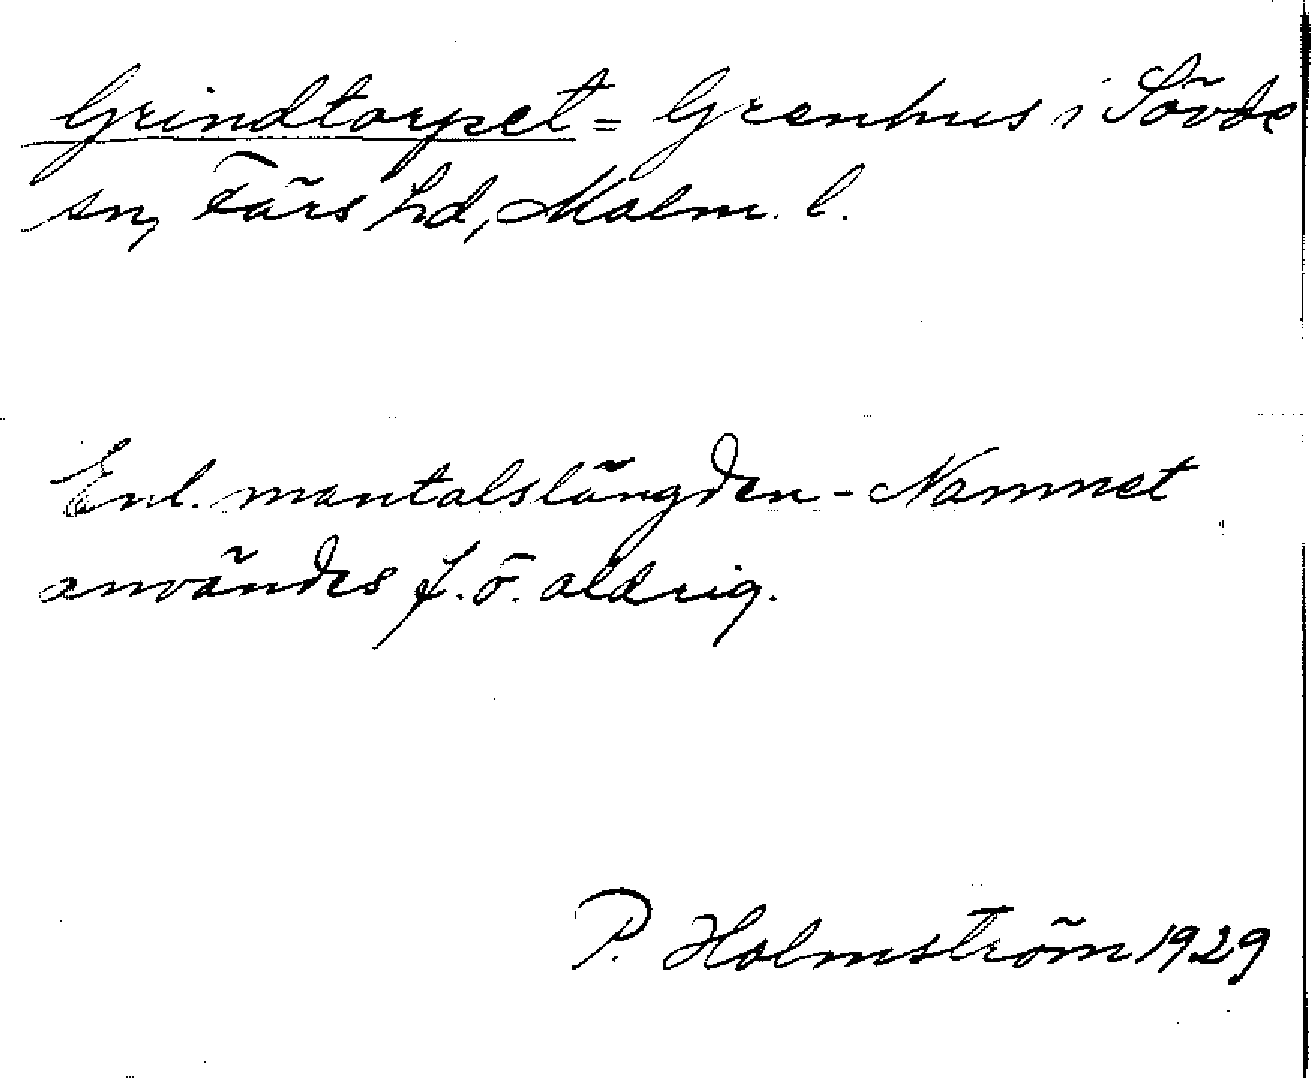 Grindtorpet = Grenhus i Sövde
sn, Färs hd, Malm. l.
Enl. mantalslängden - Namnet
användes f.ö. aldrig.
P. Holmström 1929